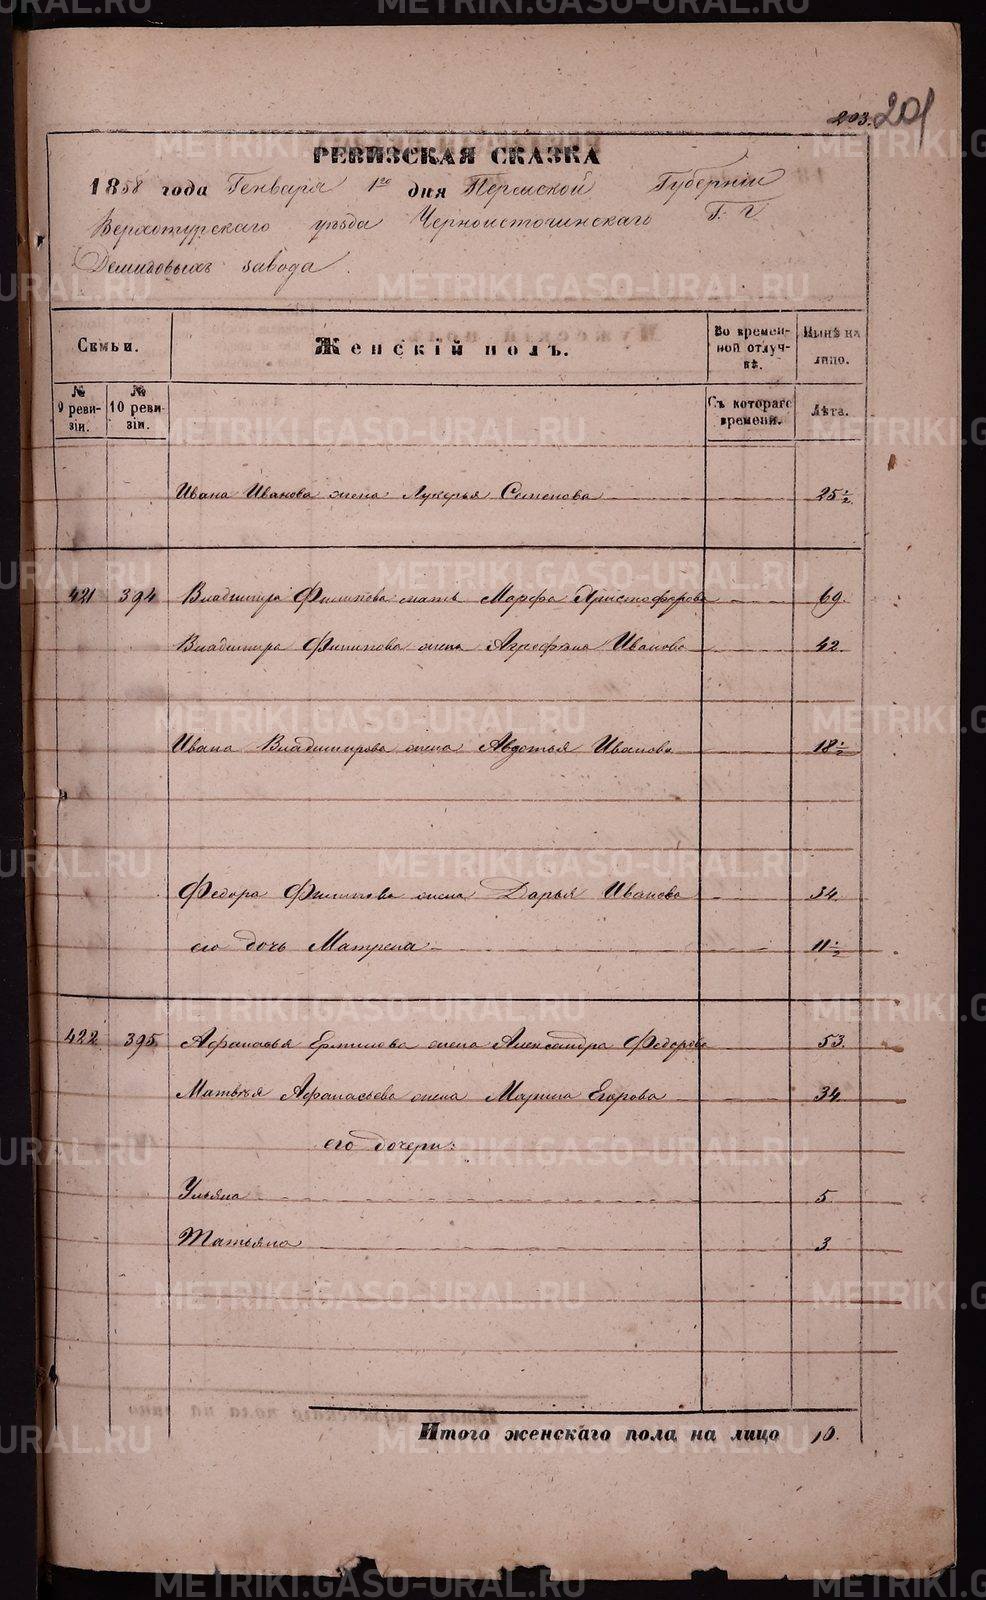 203. 201
РЕВИЗСКАЯ СКАЗКА
1858 года Генваря 1го дня Пермской Губерніи
Верхотурскаго уѣзда Черноисточинскаго Г. Г.
Демидовыхъ завода
Семьи.
Женскій полъ.
Во времен-
ной отлуч-
кѣ.
Нынѣ на
лицо.
№
9 реви-
зіи.
№
10 реви-
зіи.
Съ котораго
времени.
Лѣта.
Ивана Иванова жена Лукерья Семенова 25 1/2
421 394 Владимира Филипова мать Марфа Христофорова 69.
Владимира Филипова жена Агрефена Иванова 42.
Ивана Владимирова жена Авдотья Иванова 18 1/2
Федора Филипова жена Дарья Иванова 34.
его дочь Матрена 11 1/2
422 395. Афанасья Ермилова жена Александра Федорова 53.
Матвѣя Афанасьева жена Марина Егорова 34.
его дочери:
Ульяна 5.
Татьяна 3.
Итого женскаго пола на лицо 10.
METRIKI.GASO-URAL.RU